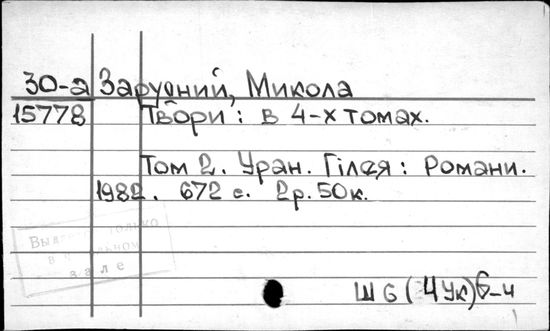 30-а Зарудний, Микола
15778 Твори: в 4-х томах.
Том 2. Уран. Гілея: Романи.
1982. 672 с. 2р. 50к.
только
в
зале
Ш6(4Ук)6-4